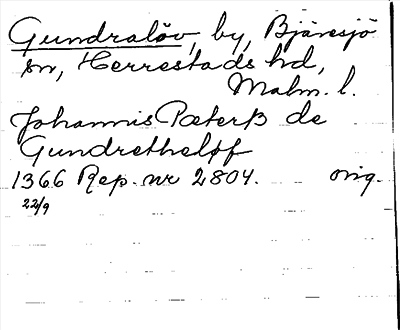 Gundralöv, by, Bjäresjö
sn, Herrestads hd,
Malm. l.
Johannis Pæterß de
Gundretheløf
1366 Rep. nr 2804. orig.
22/9